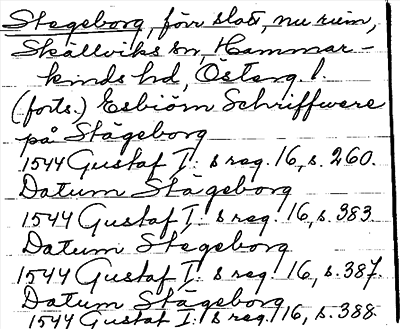 Stegeborg, förr slott, nu ruin,
Skällviks sn, Hammar-
kinds hd, Österg. l.
(forts.) Esbiörn Schriffwere
på Stägeborg
1544 Gustaf I: s reg. 16, s. 260.
Datum Stägeborg
1544 Gustaf I: s reg. 16, s. 383
Datum Stegeborg
1544 Gustaf I: s reg. 16, s. 387.
Datum Stägeborg
1544 Gustaf I: s reg. 16, s. 388.